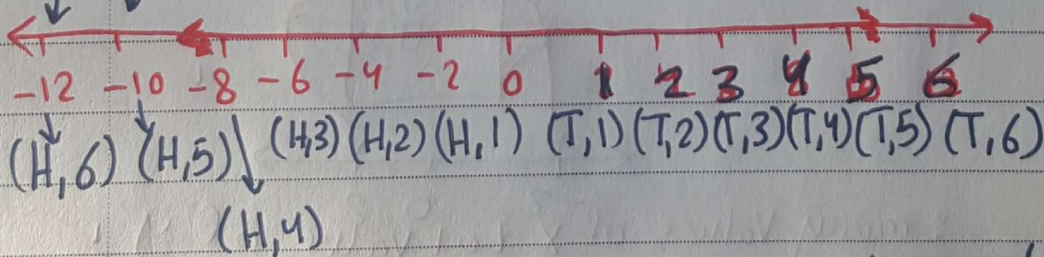 -12 -10 -8 -6 -4 -2 0 1 2 3 4 5 6
(H,6) (H,5) (H,3) (H,2) (H,1) (T,1) (T,2) (T,3) (T,4) (T,5) (T,6)
(H,4)